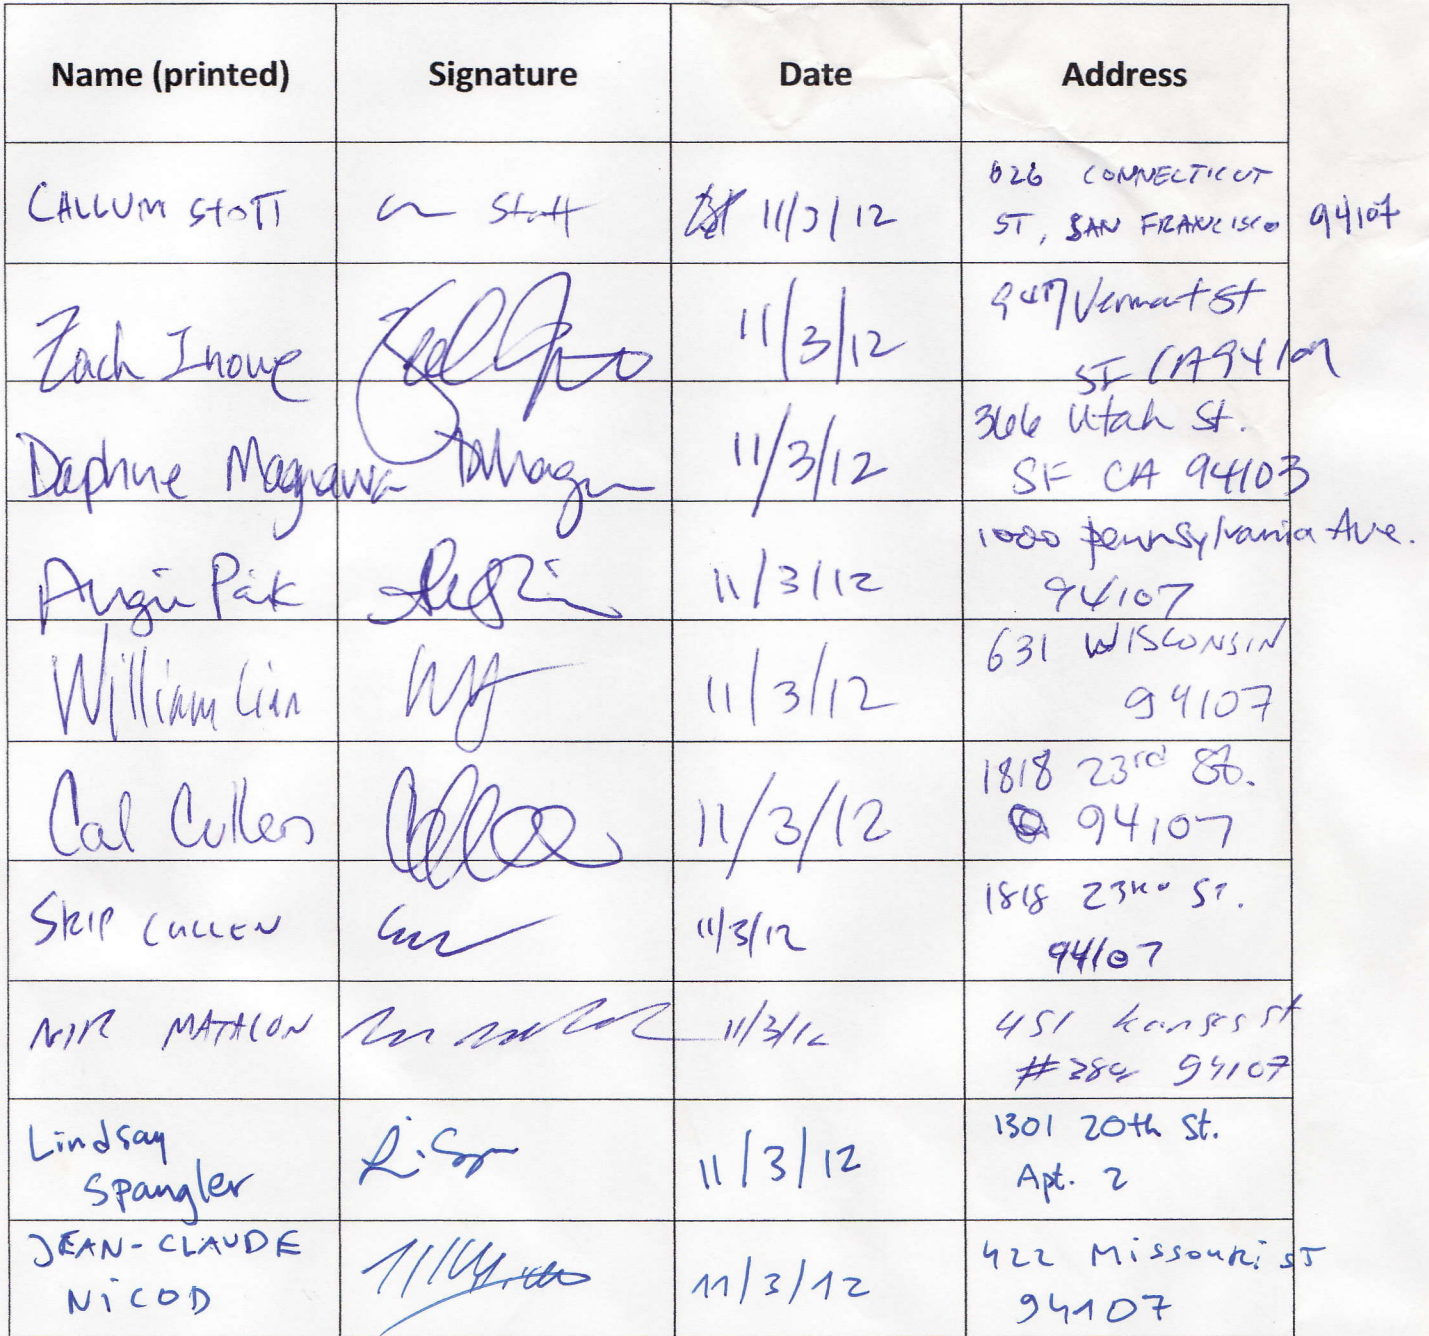 Name (printed) Signature Date Address
CALLUM STOTT Stott 11/3/12 626 CONNECTICUT
ST, SAN FRANCISCO 94107
Zach Inoue 11/3/12 947 Vermont St
SF CA 94107
Daphne Magnawa 11/3/12 366 Utah St.
SF CA 94103
Angie Pak 11/3/12 1000 Pennsylvania Ave.
94107
William Lian 11/3/12 631 WISCONSIN
94107
Cal Cullen 11/3/12 1818 23rd St.
94107
SKIP CULLEN 11/3/12 1818 23RD ST.
94107
NIR MATALON 11/3/12 451 Kansas St
94107
Lindsay
Spangler 11/3/12 1301 20th St.
Apt. 2
JEAN-CLAUDE
NICOD 11/3/12 422 Missouri ST
94107